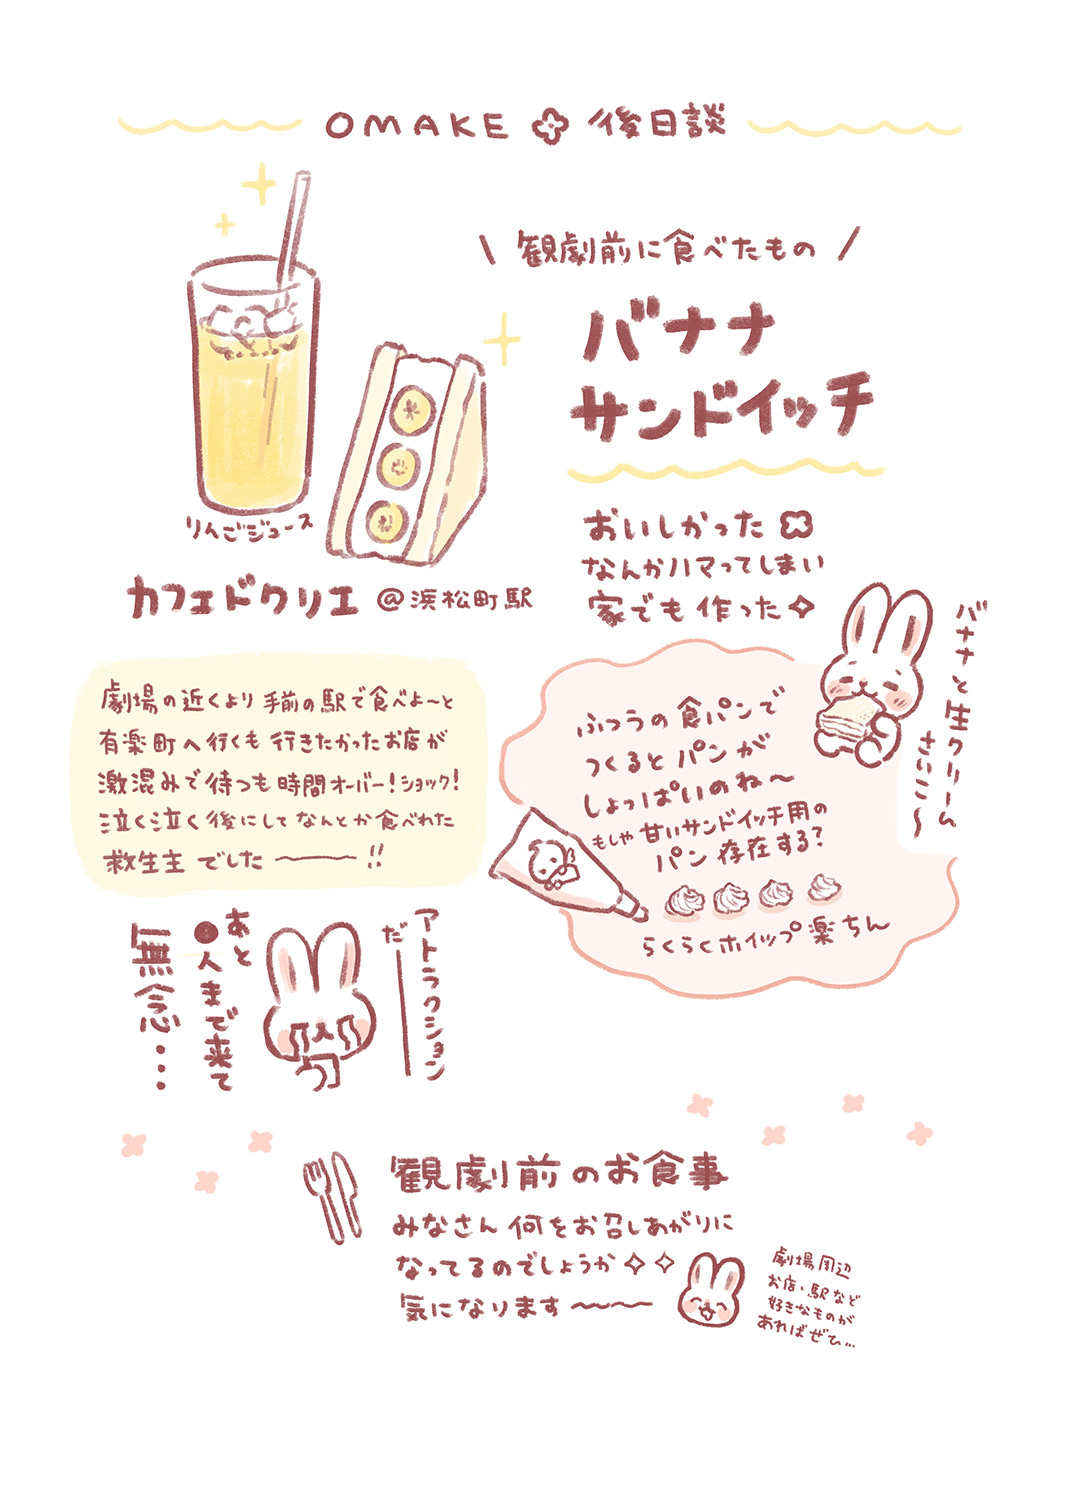 OMAKE 後日談
\ 観劇前に食べたもの /
バナナ
サンドイッチ
りんごジュース
カフェドクリエ @浜松町駅
おいしかった
なんかハマってしまい
家でも作った
バナナと生クリーム
さいこ〜
劇場の近くより手前の駅で食べよ〜と
有楽町へ行くも行きたかったお店が
激混みで待つも時間オーバー!ショック!
泣く泣く後にしてなんとか食べれた
救生主でした――!!
ふつうの食パンで
つくるとパンが
しょっぱいのね〜
もしや甘いサンドイッチ用の
パン存在する?
らくらくホイップ楽ちん
アトラクション
だ――
あと
●人まで来て
無念・・・
観劇前のお食事
みなさん何をお召しあがりに
なってるのでしょうか
気になります〜〜
劇場周辺
お店・駅など
好きなものが
あればぜひ…